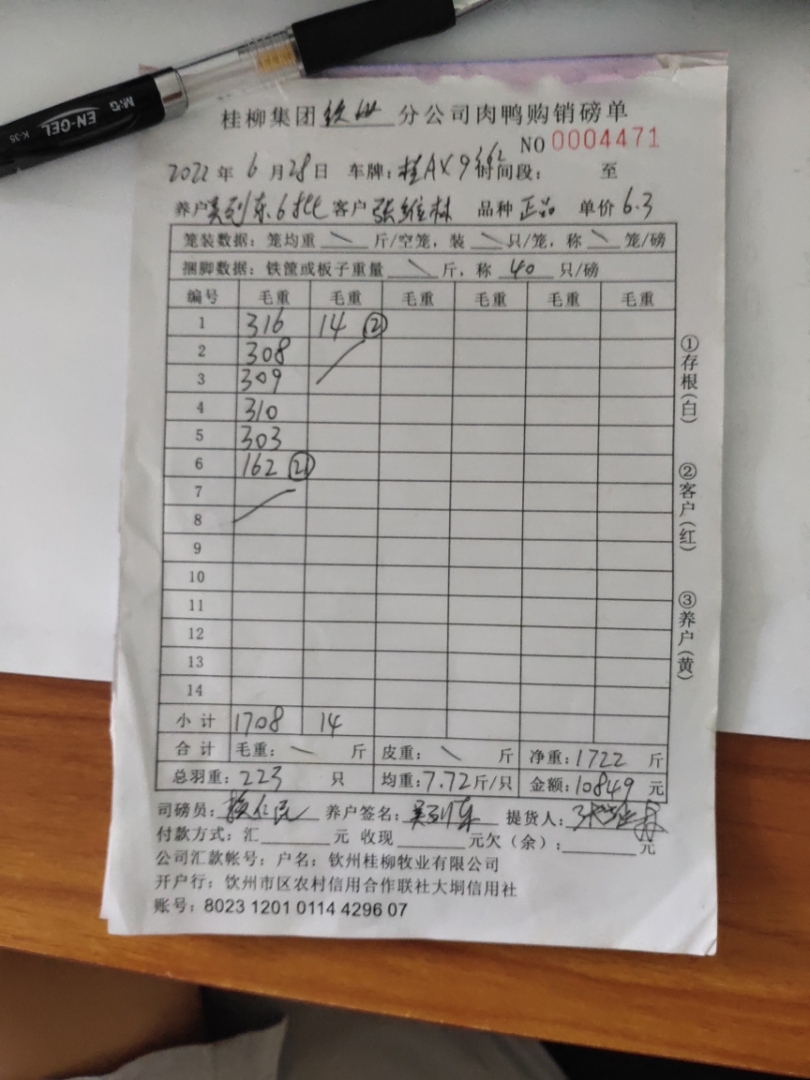 M&G EN-GEL K-35
桂柳集团钦州分公司肉鸭购销磅单
NO 0004471
2022年6月28日 车牌:桂AX9 时间段: 至
养户 东6 客户张维林 品种正品 单价6.3
笼装数据:笼均重\斤/空笼,装\只/笼,称\笼/磅
捆脚数据:铁筐或板子重量\斤,称40只/磅
编号 毛重 毛重 毛重 毛重 毛重 毛重
1 316 14 ②
2 308
3 309
4 310
5 303
6 162 ㉑
7
8
9
10
11
12
13
14
小计 1708 14
合计 毛重:\斤 皮重:\斤 净重:1722斤
总羽重:223只 均重:7.72斤/只 金额:10849元
司磅员: 养户签名: 提货人:
付款方式:汇 元 收现 元欠(余): 元
公司汇款帐号:户名:钦州桂柳牧业有限公司
开户行:钦州市区农村信用合作联社大垌信用社
账号:8023 1201 0114 4296 07
①存根(白)
②客户(红)
③养户(黄)